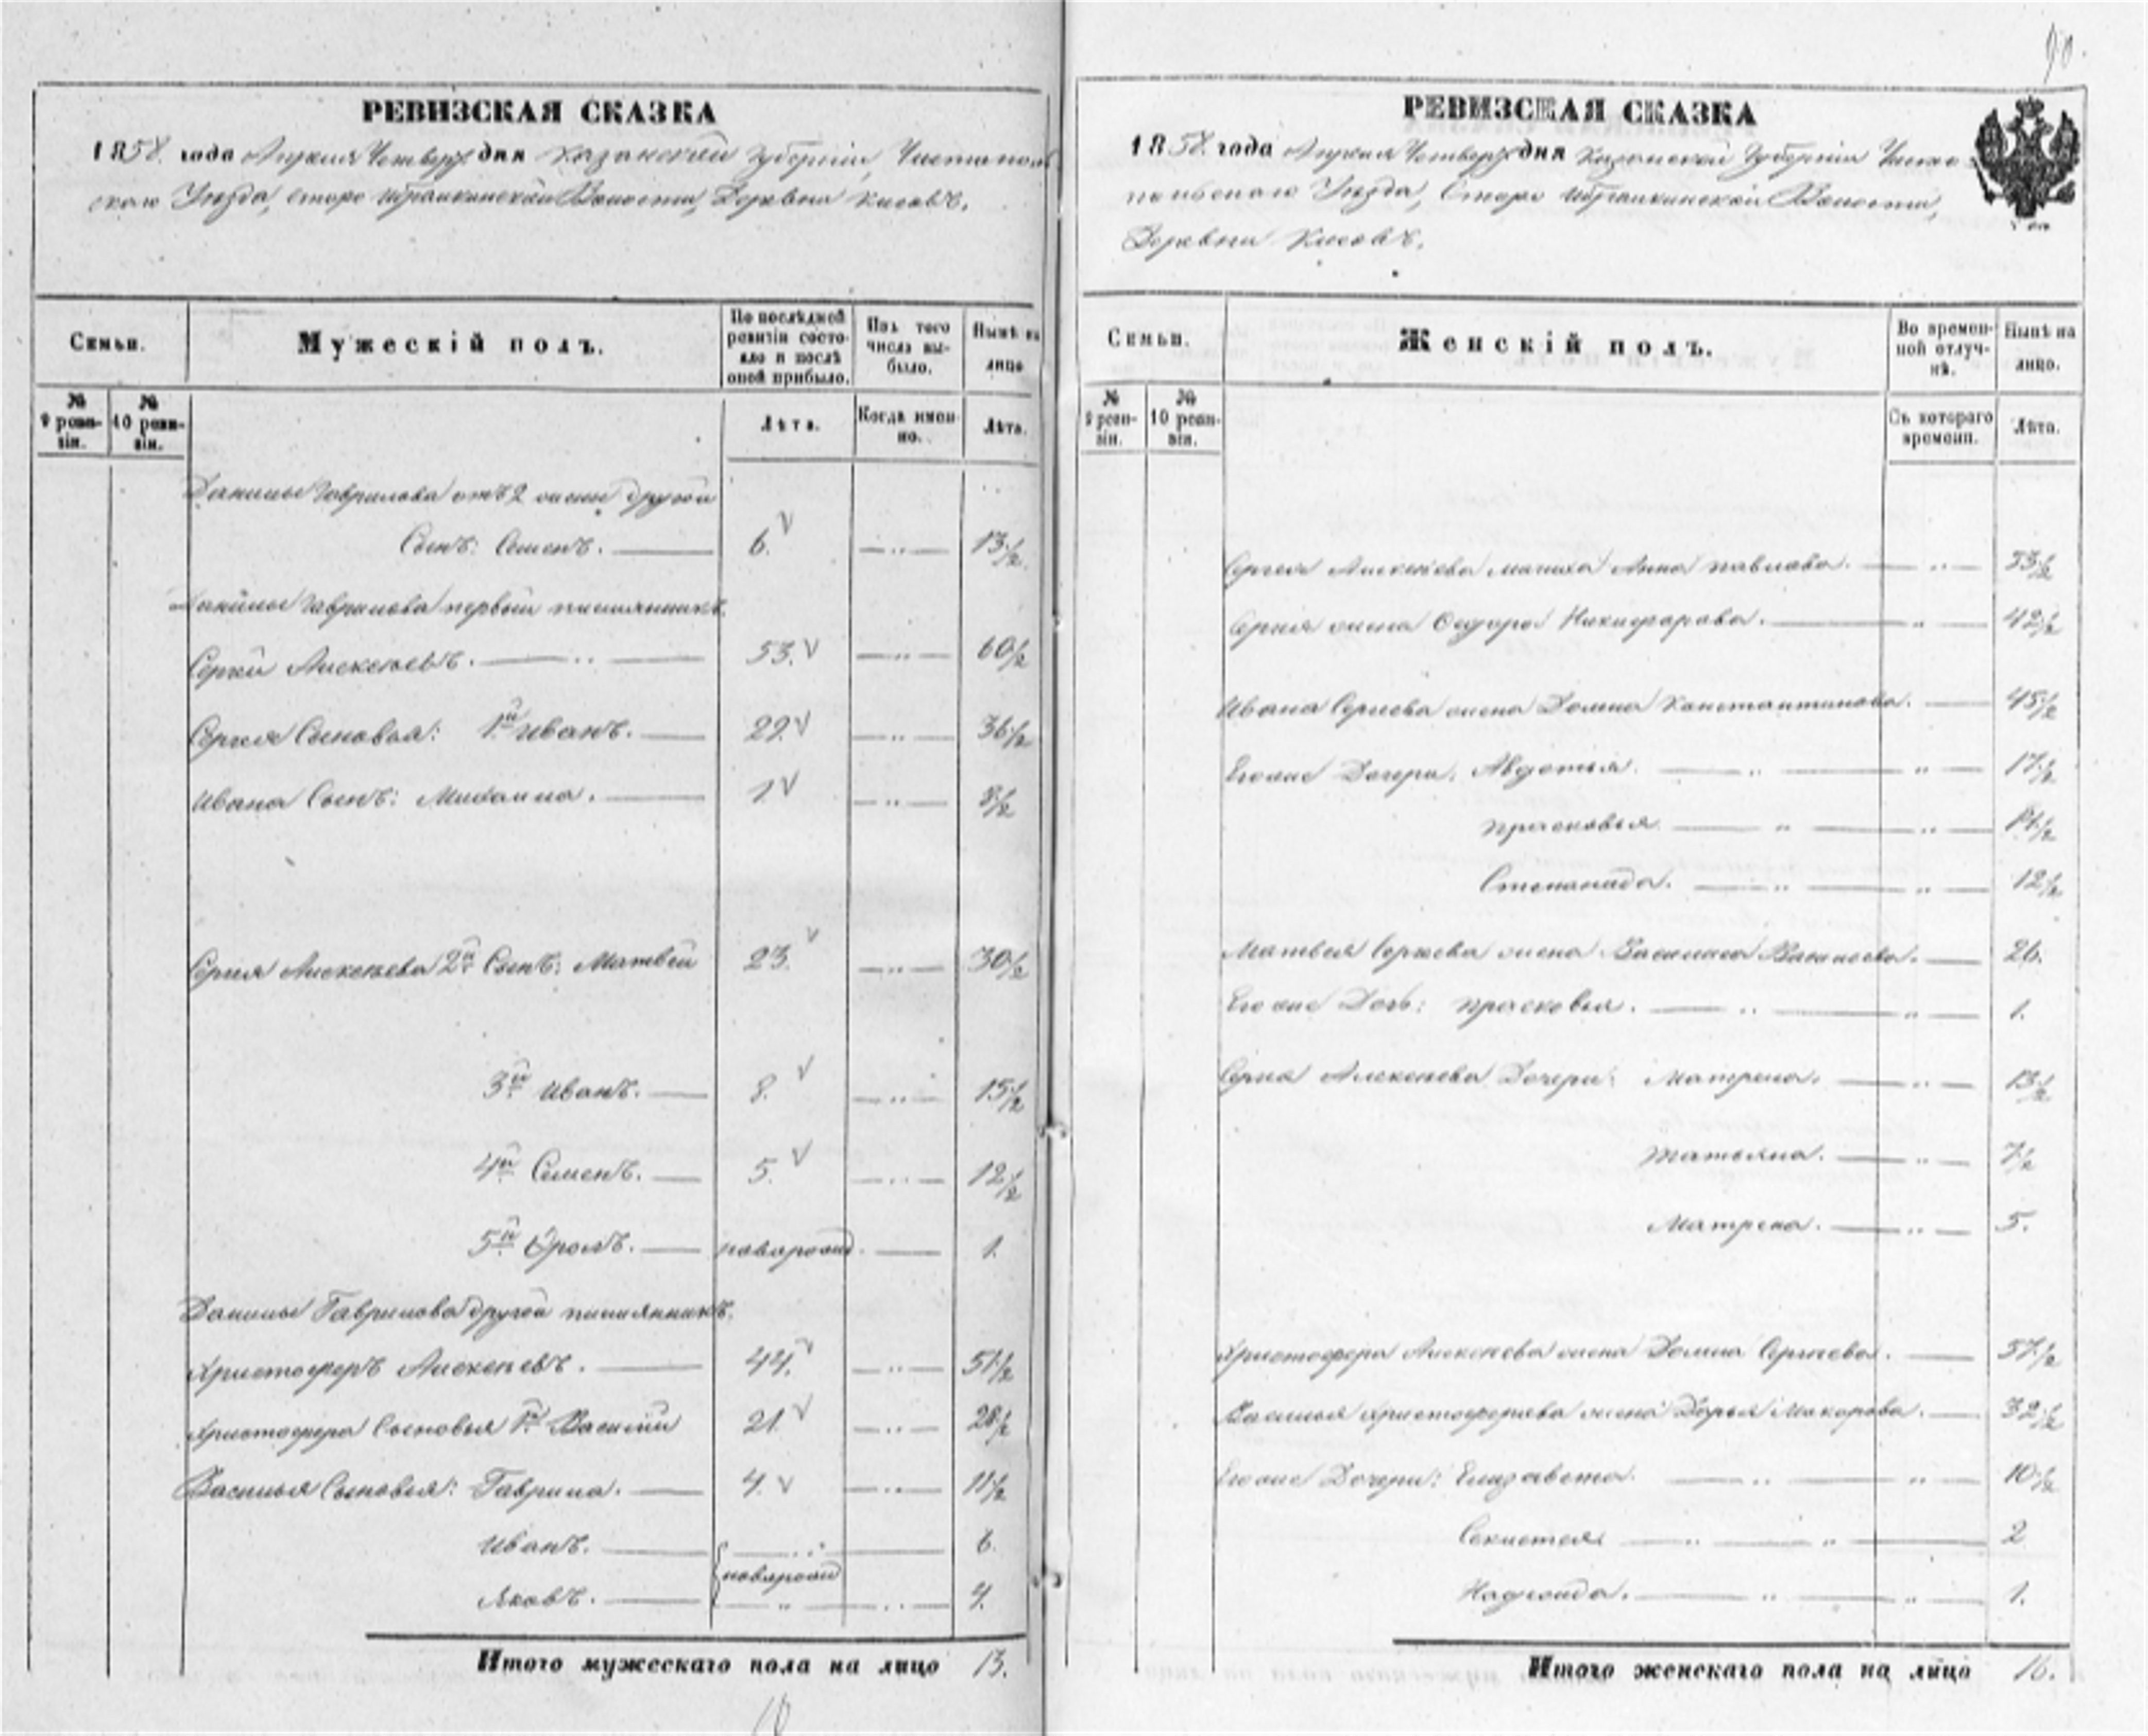 90.
РЕВИЗСКАЯ СКАЗКА
1858 года Апреля Четверт дня Казанской Губернiи, Чистополь
скаго Уезда, Старо Ибрайкинской Волости, Деревни Кисовъ.
Семьи.
Мужескiй полъ.
По последней ревизiи состояло и после оной прибыло.
Изъ того числа выбыло.
Ныне на лицо
№ 9 ревизiи.
№ 10 ревизiи.
Лета.
Когда именно.
Лета.
Данилы Гаврилова отъ 2 жены другой
Сынъ: Семенъ. 6. 13 1/2
Данилы Гаврилова первый племянникъ
Сергей Алексеевъ. 53. 60 1/2
Сергея Сыновья: 1й Иванъ. 29. 36 1/2
Ивана Сынъ: Михаила. 1. 8 1/2
Сергея Алексеева 2й Сынъ: Матвей 23. 30 1/2
3й Иванъ. 8. 15 1/2
4й Семенъ. 5. 12 1/2
5й Фролъ. новорожд. 1.
Данилы Гаврилова другой племянникъ.
Христофоръ Алексеевъ. 44. 51 1/2
Христофора Сыновья 1й Василiй 21. 28 1/2
Василья Сыновья: Гаврила. 4. 11 1/2
Иванъ. 6.
новорожд
Яковъ. 4.
Итого мужескаго пола на лицо 13.
РЕВИЗСКАЯ СКАЗКА
1858 года Апреля Четверт дня Казанской Губернiи Чисто
польскаго Уезда, Старо Ибрайкинской Волости,
Деревни Кисовъ.
Семьи.
Женскiй полъ.
Во временной отлучке.
Ныне на лицо.
№ 9 ревизiи.
№ 10 ревизiи.
Съ котораго времени.
Лета.
Сергея Алексеева мачиха Анна Павлова. 53 1/2
Сергея жена Федора Никифорова. 42 1/2
Ивана Сергеева жена Домна Константинова. 45 1/2
Его же Дочери: Авдотья. 17 1/2
Прасковья. 14 1/2
Степанида. 12 1/2
Матвея Сергеева жена Василиса Васильева. 26.
Его же Дочь: Прасковья. 1.
Сергея Алексеева Дочери: Матрена. 13 1/2
Татьяна. 7 1/2
Матрена. 5.
Христофора Алексеева жена Домна Сергеева. 57 1/2
Василья Христофорова жена Дарья Макарова. 32 1/2
Его же Дочери: Елизавета. 10 1/2
2
1.
Итого женскаго пола на лицо 16.